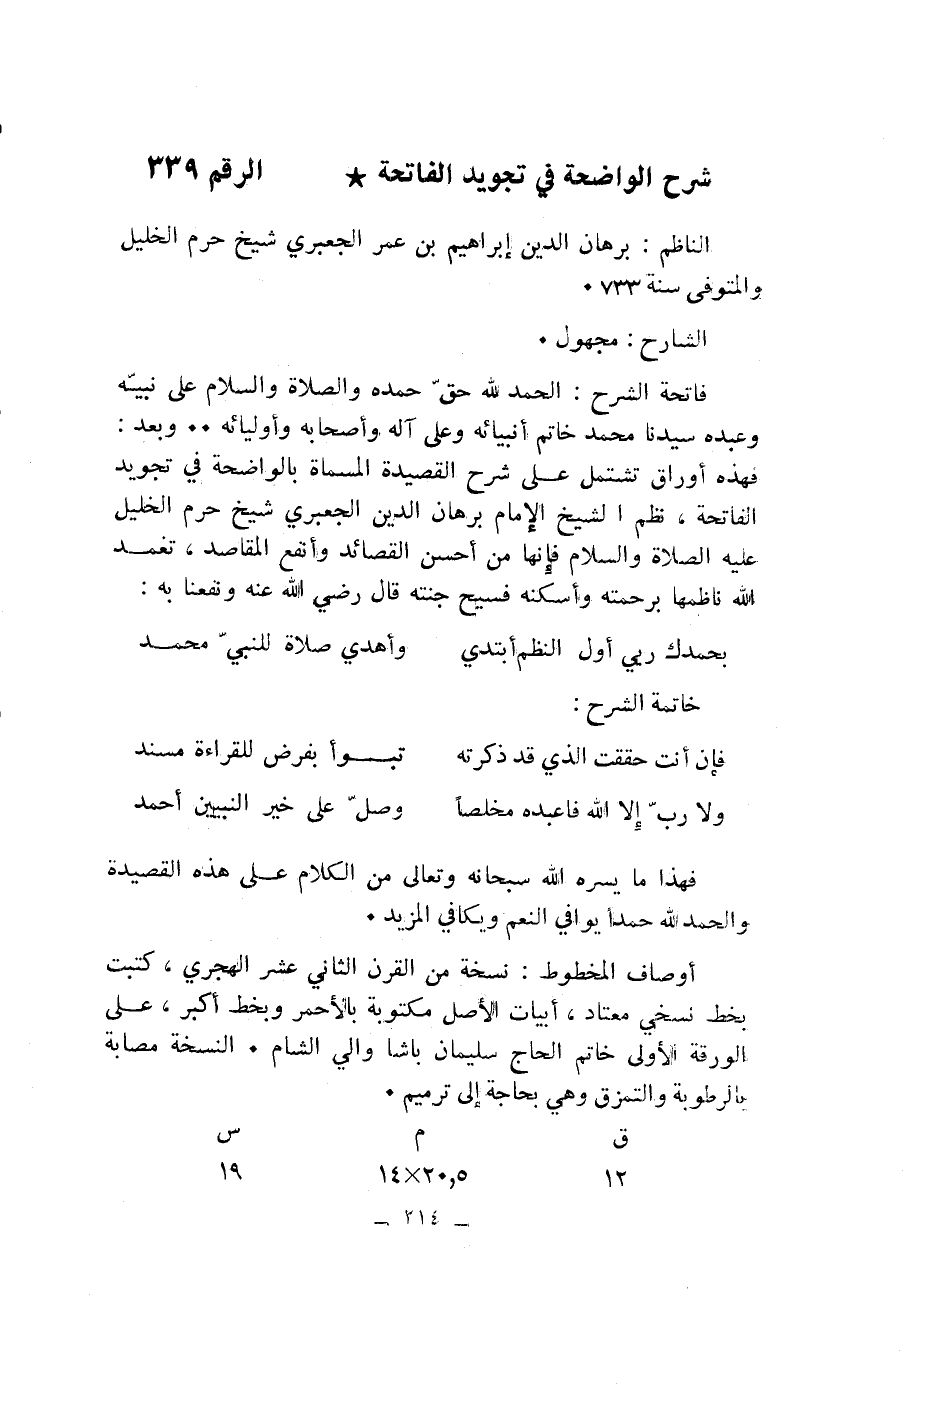 شرح الواضحة في تجويد الفاتحة ★ الرقم ٣٣٩
الناظم : برهان الدين إبراهيم بن عمر الجعبري شيخ حرم الخليل
والمتوفى سنة ٧٣٣ ٠
الشارح : مجهول ٠
فاتحة الشرح : الحمد لله حقّ حمده والصلاة والسلام على نبيّه
وعبده سيدنا محمد خاتم أنبيائه وعلى آله وأصحابه وأوليائه ٠٠ وبعد :
فهذه أوراق تشتمل عـلى شرح القصيدة المسماة بالواضحة في تجويد
الفاتحة ، نظم ا لشيخ الإمام برهان الدين الجعبري شيخ حرم الخليل
عليه الصلاة والسلام فإنها من أحسن القصائد وأنفع المقاصد ، تغمـد
الله ناظمها برحمته وأسكنه فسيح جنته قال رضي الله عنه ونفعنا به :
بحمدك ربي أول النظم أبتدي وأهدي صلاة للنبيّ محمـد
خاتمة الشرح :
فإن أنت حققت الذي قد ذكرته تبـوأ بفرض للقراءة مسند
ولا ربّ إلا الله فاعبده مخلصاً وصلّ على خير النبيين أحمد
فهذا ما يسره الله سبحانه وتعالى من الكلام عـلى هذه القصيدة
والحمد لله حمداً يوافي النعم ويكافي المزيد ٠
أوصاف المخطوط : نسخة من القرن الثاني عشر الهجري ، كتبت
بخط نسخي معتاد ، أبيات الأصل مكتوبة بالأحمر وبخط أكبر ، عـلى
الورقة الأولى خاتم الحاج سليمان باشا والي الشام ٠ النسخة مصابة
بالرطوبة والتمزق وهي بحاجة إلى ترميم ٠
ق م س
١٢ ٢٠,٥×١٤ ١٩
_ ٢١٤ _